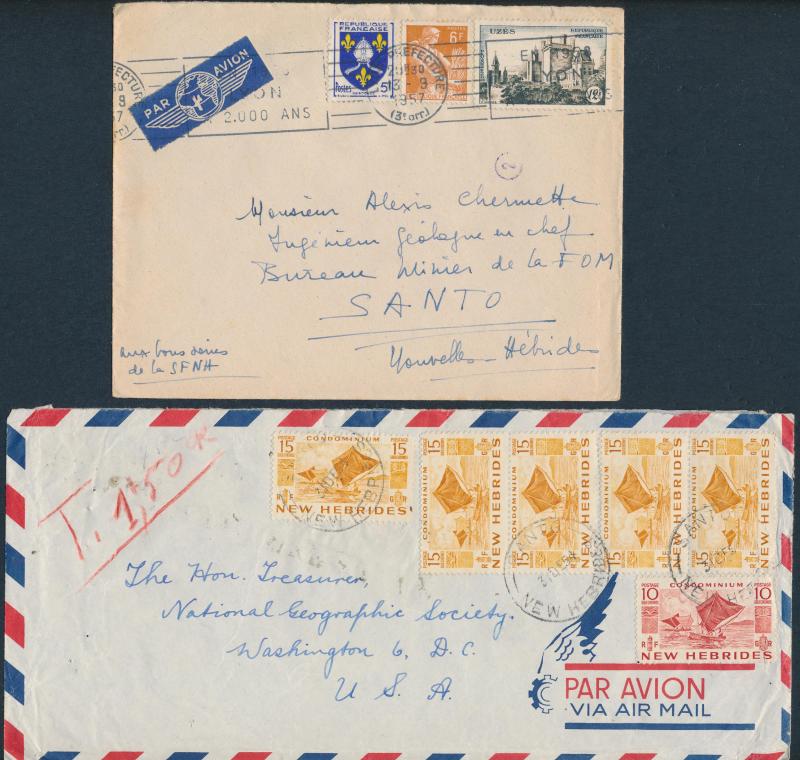 PAR AVION
REPUBLIQUE
FRANÇAISE
Postes 5F
POSTES
6F
UZÈS
REPUBLIQUE FRANÇAISE
12F
PREFECTURE
3 9
1957
(3e arr.)
LYON
2.000 ANS
2
Monsieur Alexis Chermette
Ingénieur Géologue en chef
Bureau Minier de la FOM
SANTO
Nouvelles-Hébrides
aux bons soins
de la SFNH
T. 1,50
POSTAGE
15
CONDOMINIUM
15
RF
NEW HEBRIDES
15
CONDOMINIUM
15
NEW HEBRIDES
15
CONDOMINIUM
15
NEW HEBRIDES
15
CONDOMINIUM
15
NEW HEBRIDES
15
CONDOMINIUM
15
NEW HEBRIDES
SANTO
NEW HEBRIDES
The Hon. Treasurer
National Geographic Society.
Washington 6, D.C.
U. S. A.
POSTAGE
10
CONDOMINIUM
POSTAGE
10
NEW HEBRIDES
PAR AVION
VIA AIR MAIL